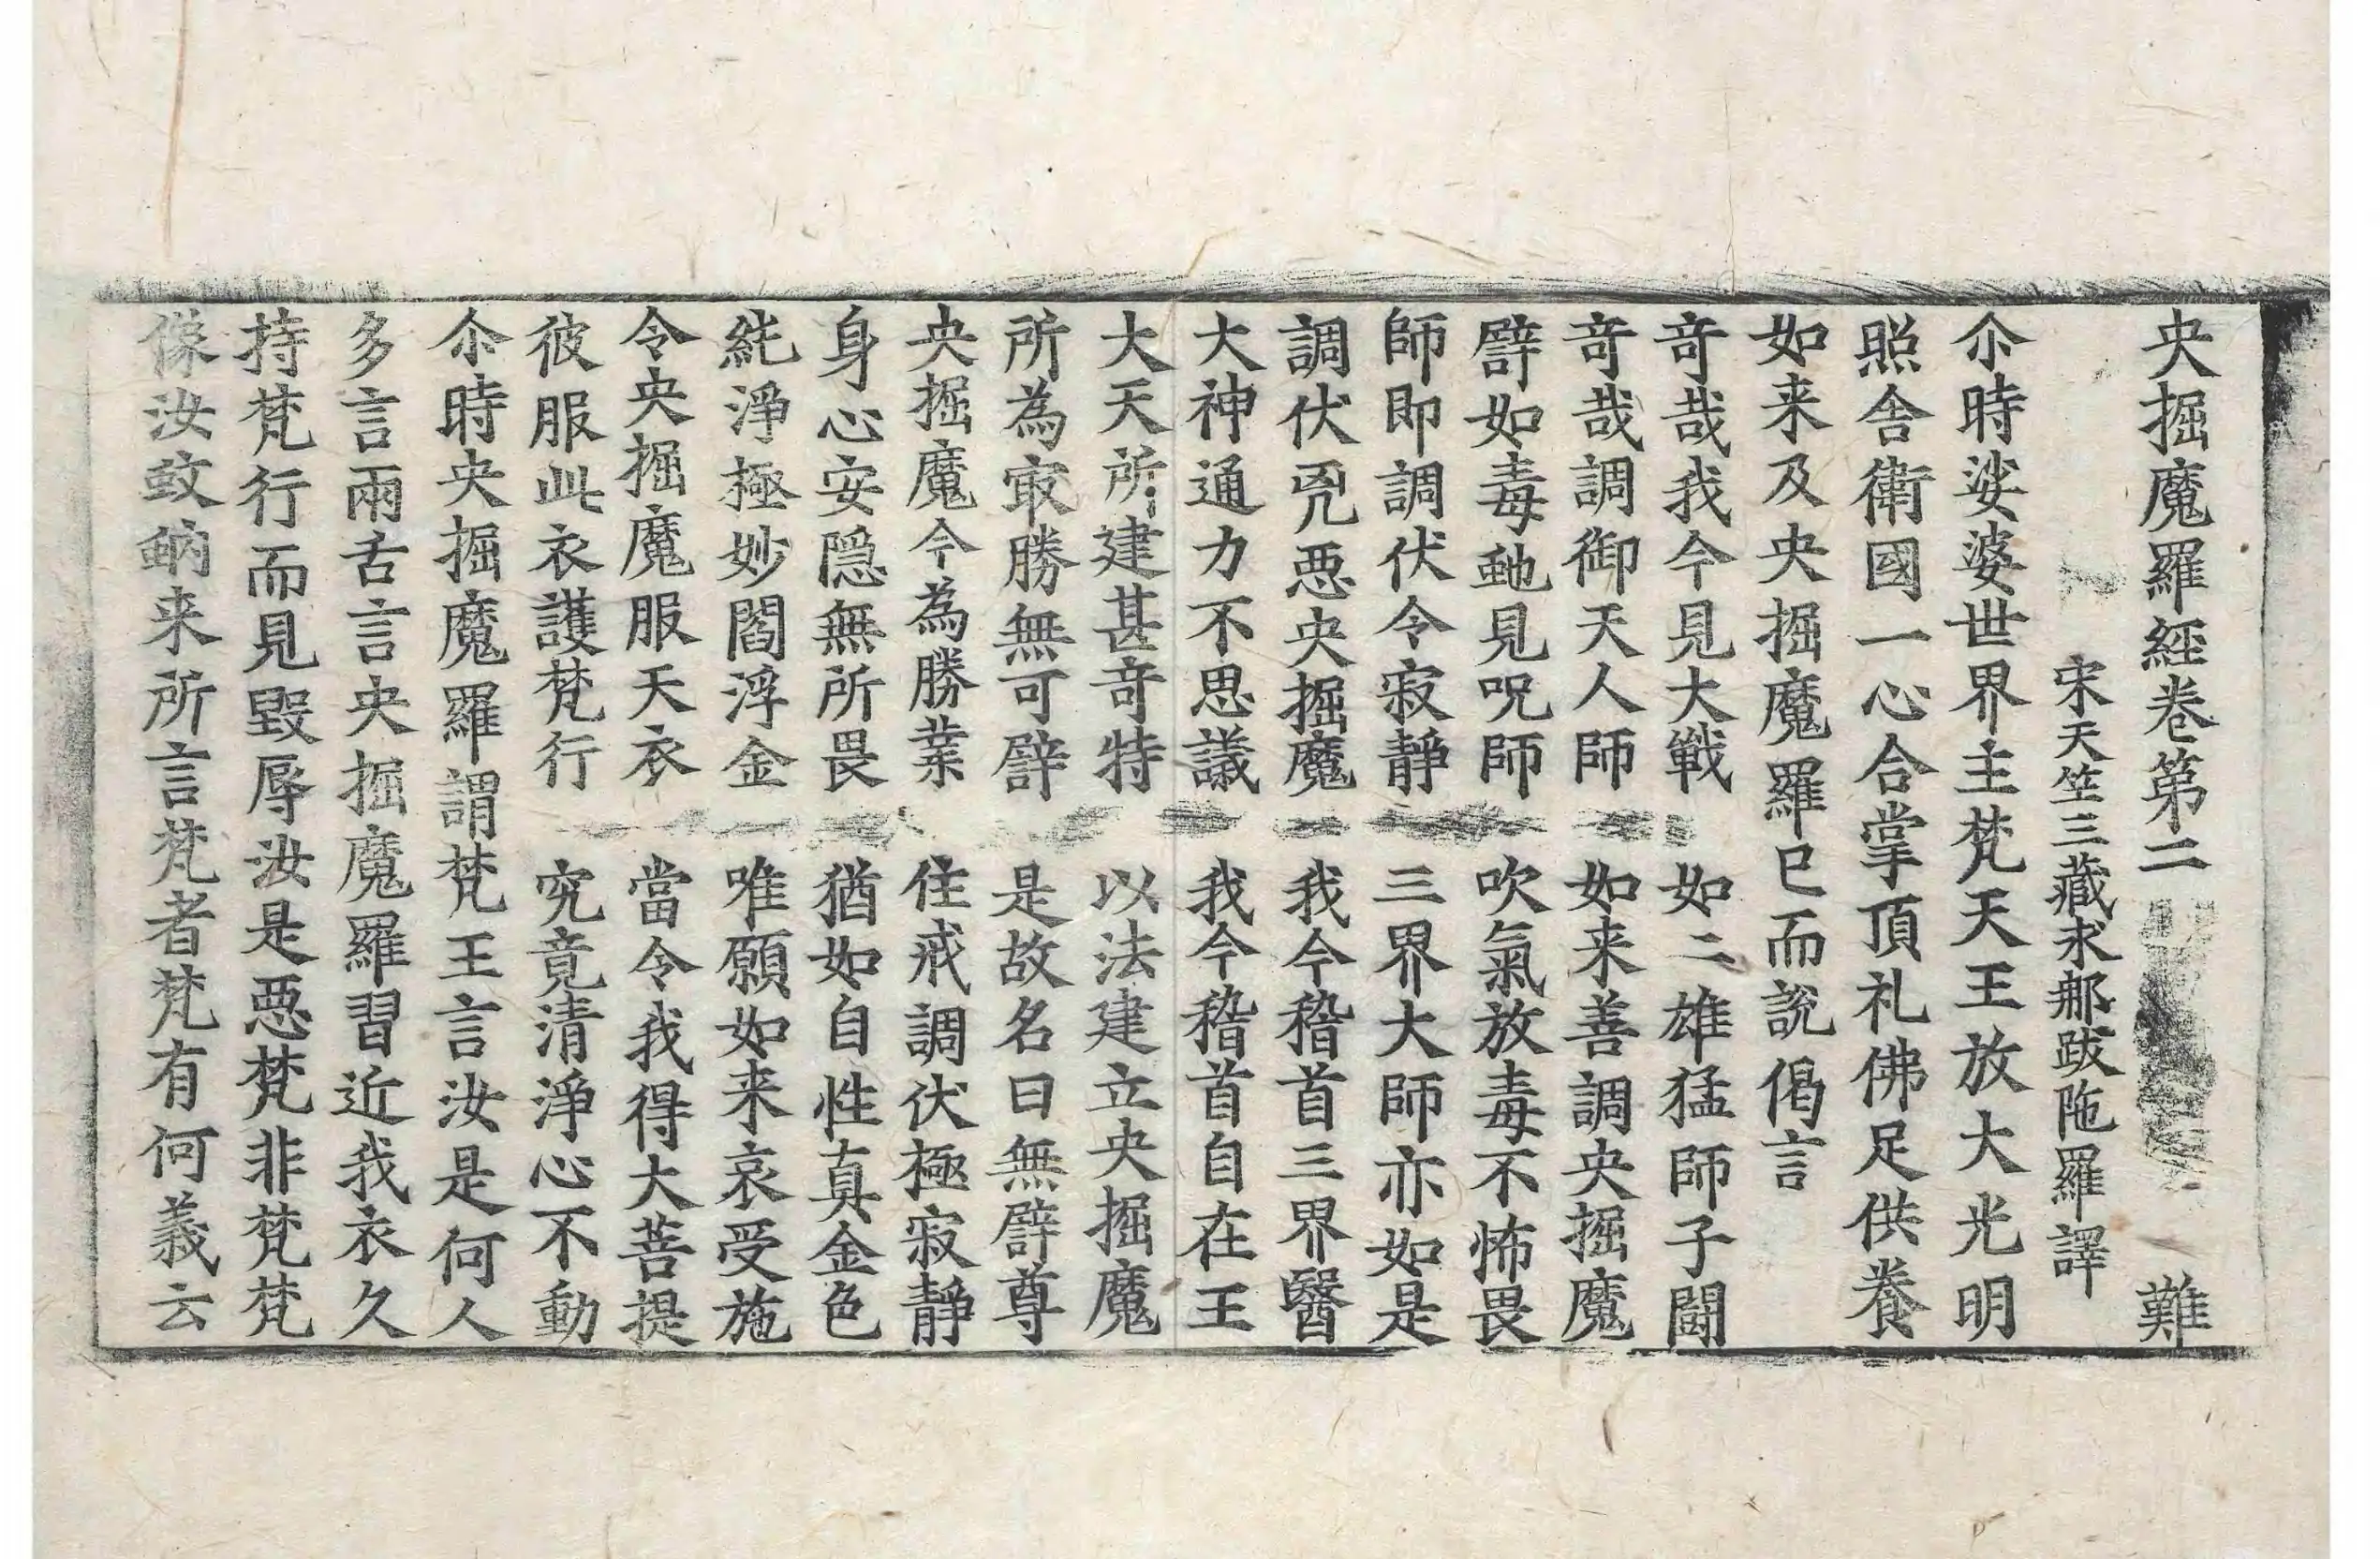 央掘魔羅經卷第二 難
宋天竺三藏求那跋陁羅譯
尒時娑婆世界主梵天王放大光明
照舍衛國一心合掌頂礼佛足供養
如来及央掘魔羅已而說偈言
奇哉我今見大戰 如二雄猛師子鬪
奇哉調御天人師 如来善調央掘魔
譬如毒虵見呪師 吹氣放毒不怖畏
師即調伏令寂靜 三界大師亦如是
調伏兇惡央掘魔 我今稽首三界醫
大神通力不思議 我今稽首自在王
大天所建甚奇特 以法建立央掘魔
所為㝡勝無可譬 是故名曰無譬尊
央掘魔今為勝業 住戒調伏極寂靜
身心安隱無所畏 猶如自性真金色
純淨極妙閻浮金 唯願如来哀受施
令央掘魔服天衣 當令我得大菩提
彼服此衣護梵行 究竟清淨心不動
尒時央掘魔羅謂梵王言汝是何人
多言兩舌言央掘魔羅習近我衣久
持梵行而見毀辱汝是惡梵非梵梵
像汝蚊蚋来所言梵者梵有何義云